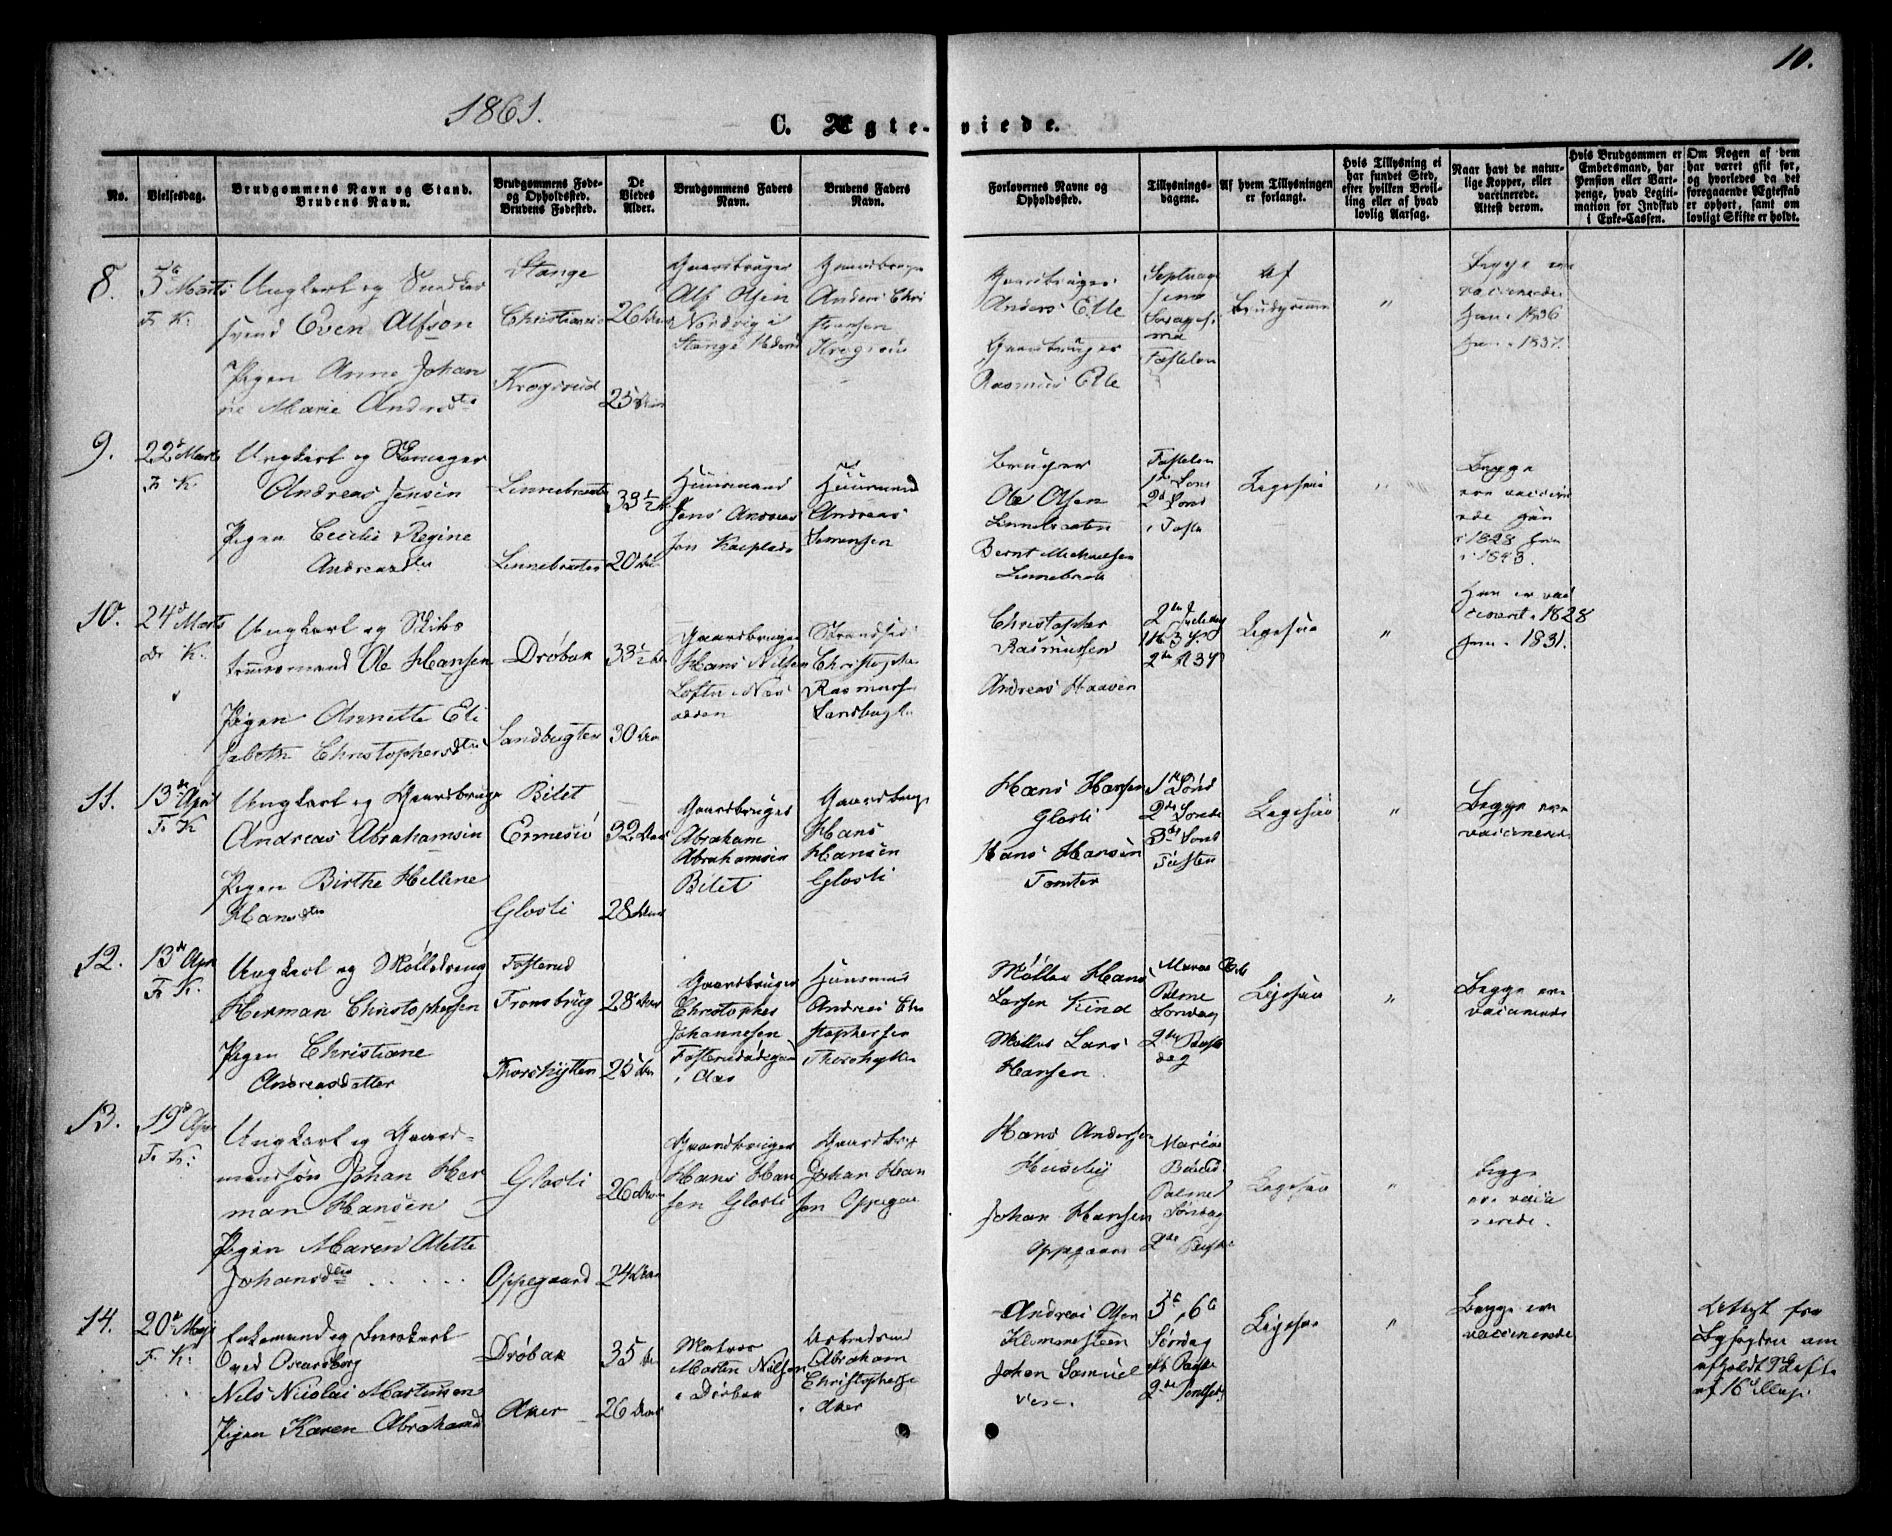 10.
1861.
C. Ægte-viede.
No.
Vielsesdag.
Brudgommens Navn og Stand.
Brudens Navn.
Brudgommens Føde-
og Opholdssted.
Brudens Fødested.
De
Viedes
Alder.
Brudgommens Faders
Navn.
Brudens Faders
Navn.
Forlovernes Navne og
Opholdssted.
Tillysnings-
dagene.
Af hvem Tillysningen
er forlangt.
Hvis Tillysning ei
har fundet Sted,
efter hvilken Bevil-
ling eller af hvad
lovlig Aarsag.
Naar havt de natur-
lige Kopper, eller
vaccinerede.
Attest derom.
Hvis Brudgommen er
Embedsmand, har
Pension eller Vart-
penge, hvad Legiti-
mation for Indskud
i Enke-Cassen.
Om Nogen af dem
har været gift før,
og hvorledes da det
foregaaende Ægteskab
er ophørt, samt om
lovligt Skifte er holdt.
8.
5te Marts
Fr. K.
Ungkarl og Snedker
svend Even Alfson
Pigen Anne Johan
ne Marie Andersdtr
Stange
Christiania
Krogsrud
26
25
Gaardbruger
Alf Olsen
Nordvig i
Stange
Gaardbruger
Anders Chri
stiansen
Krogsrud
Gaardbruger
Anders Elle
Gaardbruger
Rasmus Elle
Septuage
sima
Sexagesi
ma
Fastelav
Af
Brudgommen
Begge ere
vaccinerede
han i 1836
hun i 1837.
9.
22de Marts
Fr. K.
Ungkarl og Skomager
Andreas Jensen
Pigen Cecilie Regine
Andreasdtr
Linnebraaten
Linnebraaten
33½
20
Huusmand
Jens Andreas
sen
Huusmand
Andreas
Sørensen
Bruger
Ole Olsen
Linnebraaten
Bernt Michaelsen
Linnebraat
Fastelav
1ste Sønd
2d Sønd
i Faste
Ligesaa
"
Begge
ere vaccine
rede han
i 1828 hun
i 1843.
10.
24de Marts
Dr. K.
Ungkarl og Skibs
tømmermand Ole Hansen
Pigen Annette Eli
sabeth Christophersdtr
Drøbak
Sandbugten
33½
30
Gaardbruger
Hans Nilsen
Strandsid
Christopher
Rasmuss
Sandbugt
Christopher
Rasmussen
Andreas Haaven
2den Juledag
Ligesaa
"
Han er vac
cineret i 1828
hun i 1831.
11.
13de April
Fr. K.
Ungkarl og Gaardbruger
Andreas Abrahamsen
Pigen Birthe Helene
Hansdtr
Bilet
Glosli
32
28
Gaardbruger
Abraham
Abrahamsen
Bilet
Gaardbruger
Hans
Hansen
Glosli
Hans Hansen
Glosli
Hans Hansen
Tomter
1ste Sønd
2den Sønd
3die Sønd
Fasten
Ligesaa
"
Begge ere
vaccinerede
12.
13de April
Fr. K.
Ungkarl og Mølledreng
Herman Christophersen
Pigen Christiane
Andreasdatter
Fosterud
Fronsbrug
Thorshytten
28
25
Gaardbruger
Christopher
Johannesen
i Aas
Huusmand
Andreas Chri
stophersen
Thorshytten
Møller Hans
Larsen Kind
Møller Lars
Hansen
Marias Beb
Palme
Søndag
2den Paaske
dag
Ligesaa
"
Begge ere
vaccinerede
13.
19de April
Fr. K.
Ungkarl og Gaard-
mandssøn Johan Her
man Hansen
Pigen Maren Alette
Johansdtr . . . . .
Glosli
Oppegaard
26
24
Gaardbruger
Hans Han
sen Glosli
Gaardbrug
Johan Han
sen Oppegaa
Hans Andersen
Huseby
Johan Hansen
Oppegaard
Marias
Bebud.
Palme
Søndag
2den Paaske
Ligesaa
"
Begge
ere vacci
nerede.
14.
20de Mai
Fr. K.
Enkemand og
ved Oscarsborg
Nils Nicolai Martinsen
Pigen Karen Abrahamsd
Drøbak
Aker
35
26
Matros
Morten Nilsen
i Drøbak
Abraham
Christophersen
i Aker
Andreas Olsen
Klommesteen
Johan Samuel
sen.
5te, 6te
Søndag
eft Paaske
2den Pintsed.
Ligesaa
"
Begge ere
vaccinerede
Attest fra
Byfogden om
afholdt Skifte
af 16de Mai.